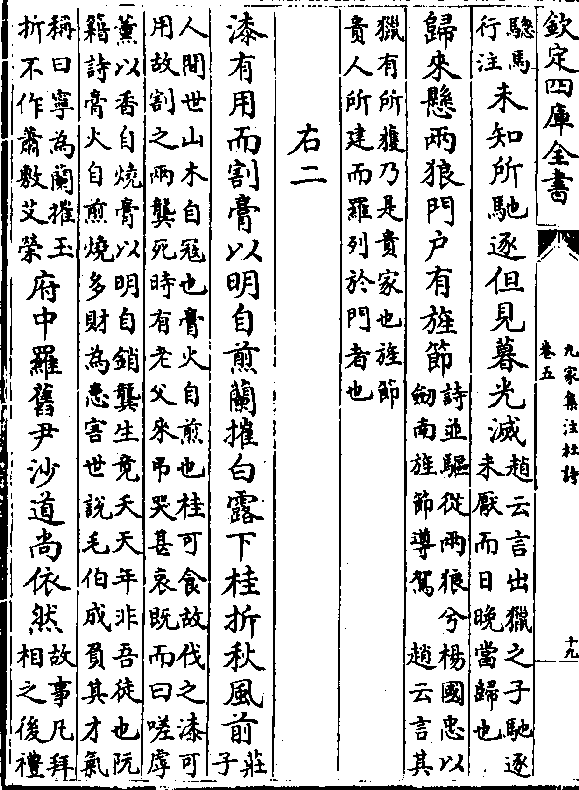 欽定四庫全書
九家集注杜詩
卷五
十九
驄馬
行注
未知所馳逐但見暮光滅
趙云言出獵之子馳逐
未厭而日晚當歸也
歸來懸兩狼門戶有旌節
詩並驅從兩狼兮楊國忠以
劒南旌節導駕 趙云言其
獵有所獲乃是貴家也旌節
貴人所建而羅列於門者也
右二
漆有用而割膏以明自煎蘭摧白露下桂折秋風前
莊
子
人間世山木自寇也膏火自煎也桂可食故伐之漆可
用故割之兩龔死時有老父來弔哭甚哀既而曰嗟虖
薰以香自燒膏以明自銷龔生竟夭天年非吾徒也阮
籍詩膏火自煎燒多財為患害世說毛伯成負其才氣
稱曰寧為蘭摧玉
折不作蕭敷艾榮
府中羅舊尹沙道尚依然
故事凡拜
相之後禮